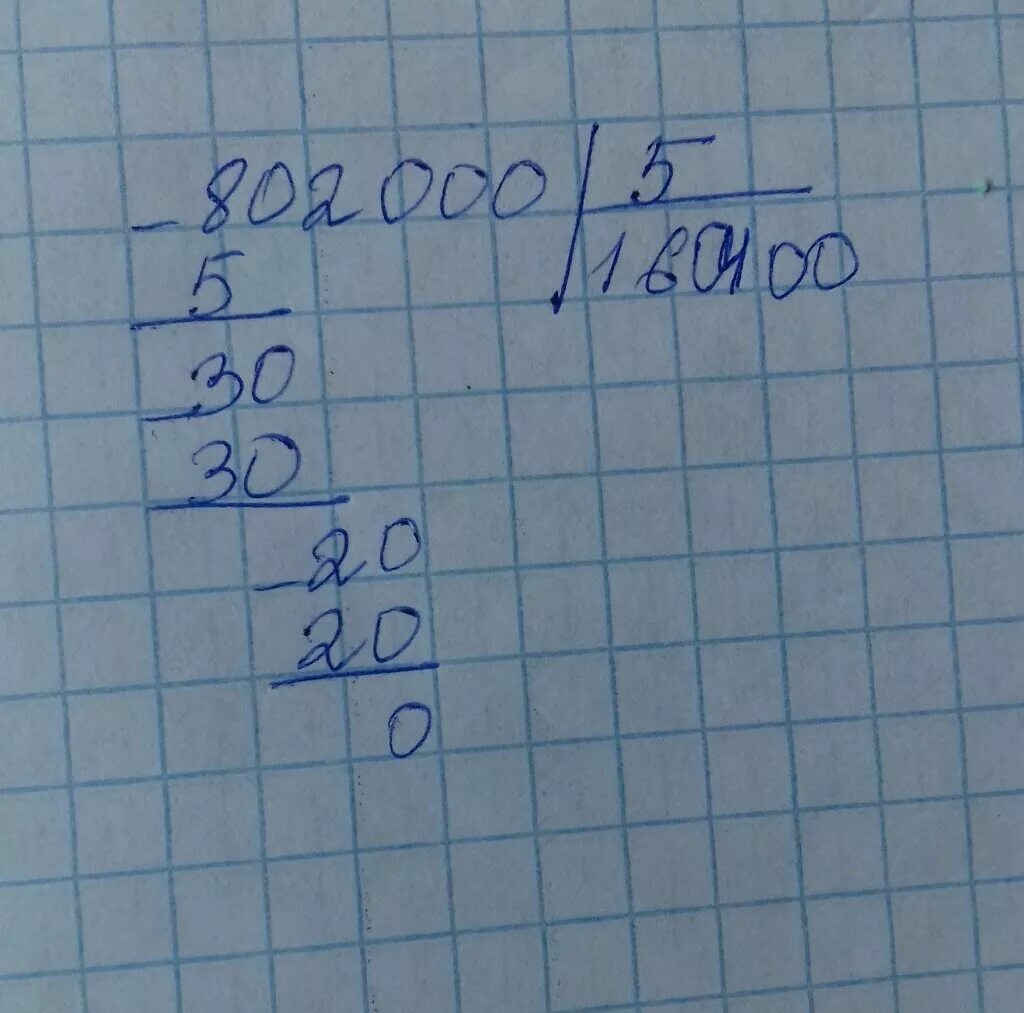 - 802000 | 5
5 | 160400
30
- 30
- 20
20
0